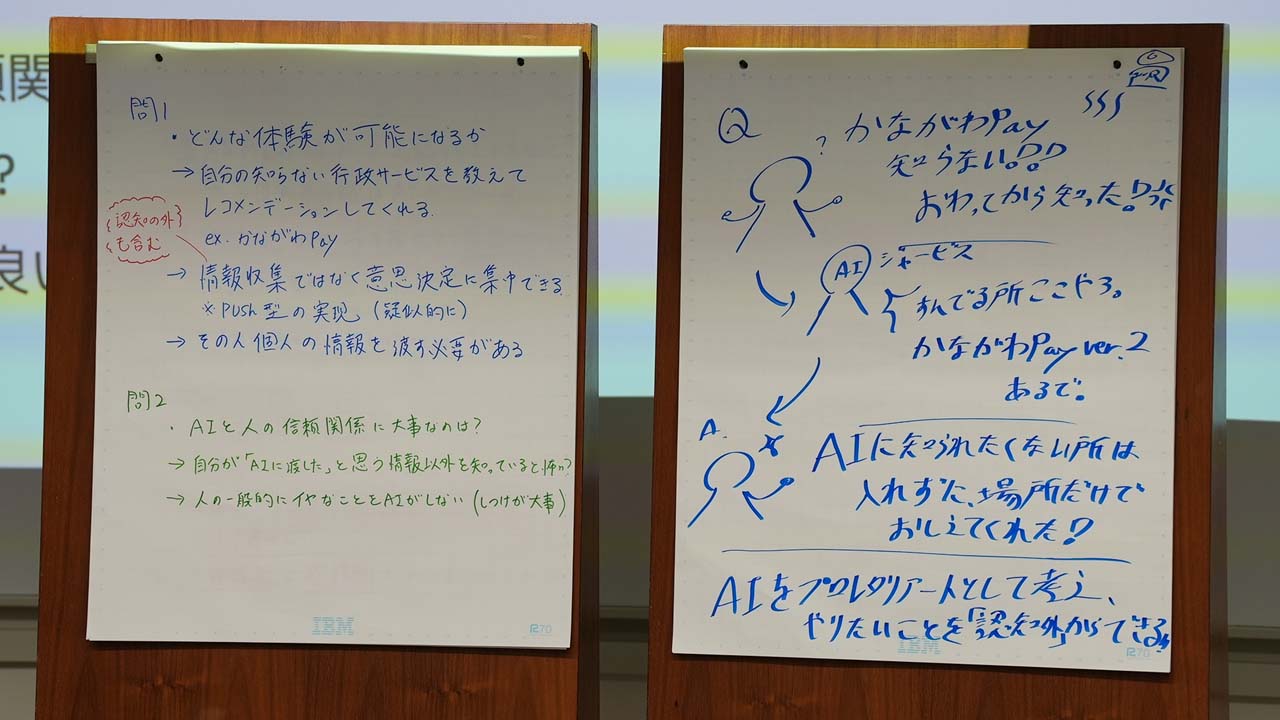 頼関
?
良い
問1
・どんな体験が可能になるか
→自分の知らない行政サービスを教えて
レコメンデーションしてくれる.
ex. かながわPay
認知の外
も含む
→情報収集ではなく意思決定に集中できる
※PUSH型の実現(疑似的に)
→その人個人の情報を渡す必要がある
問2
・AIと人の信頼関係に大事なのは?
→自分が「AIに渡した」と思う情報以外を知っていると怖い?
→人の一般的にイヤなことをAIがしない(しつけが大事)
IBM
R70
Q
? かながわPay
知らない!?!?
おわってから知った!?
AI サービス
すんでる所ここやろ。
かながわPay ver.2
あるで。
A.
AIに知られたくない所は
入れずに、場所だけで
おしえてくれた!?
AIをプロレタリアートとして考え、
やりたいことを「認知外」からできる
IBM
R70